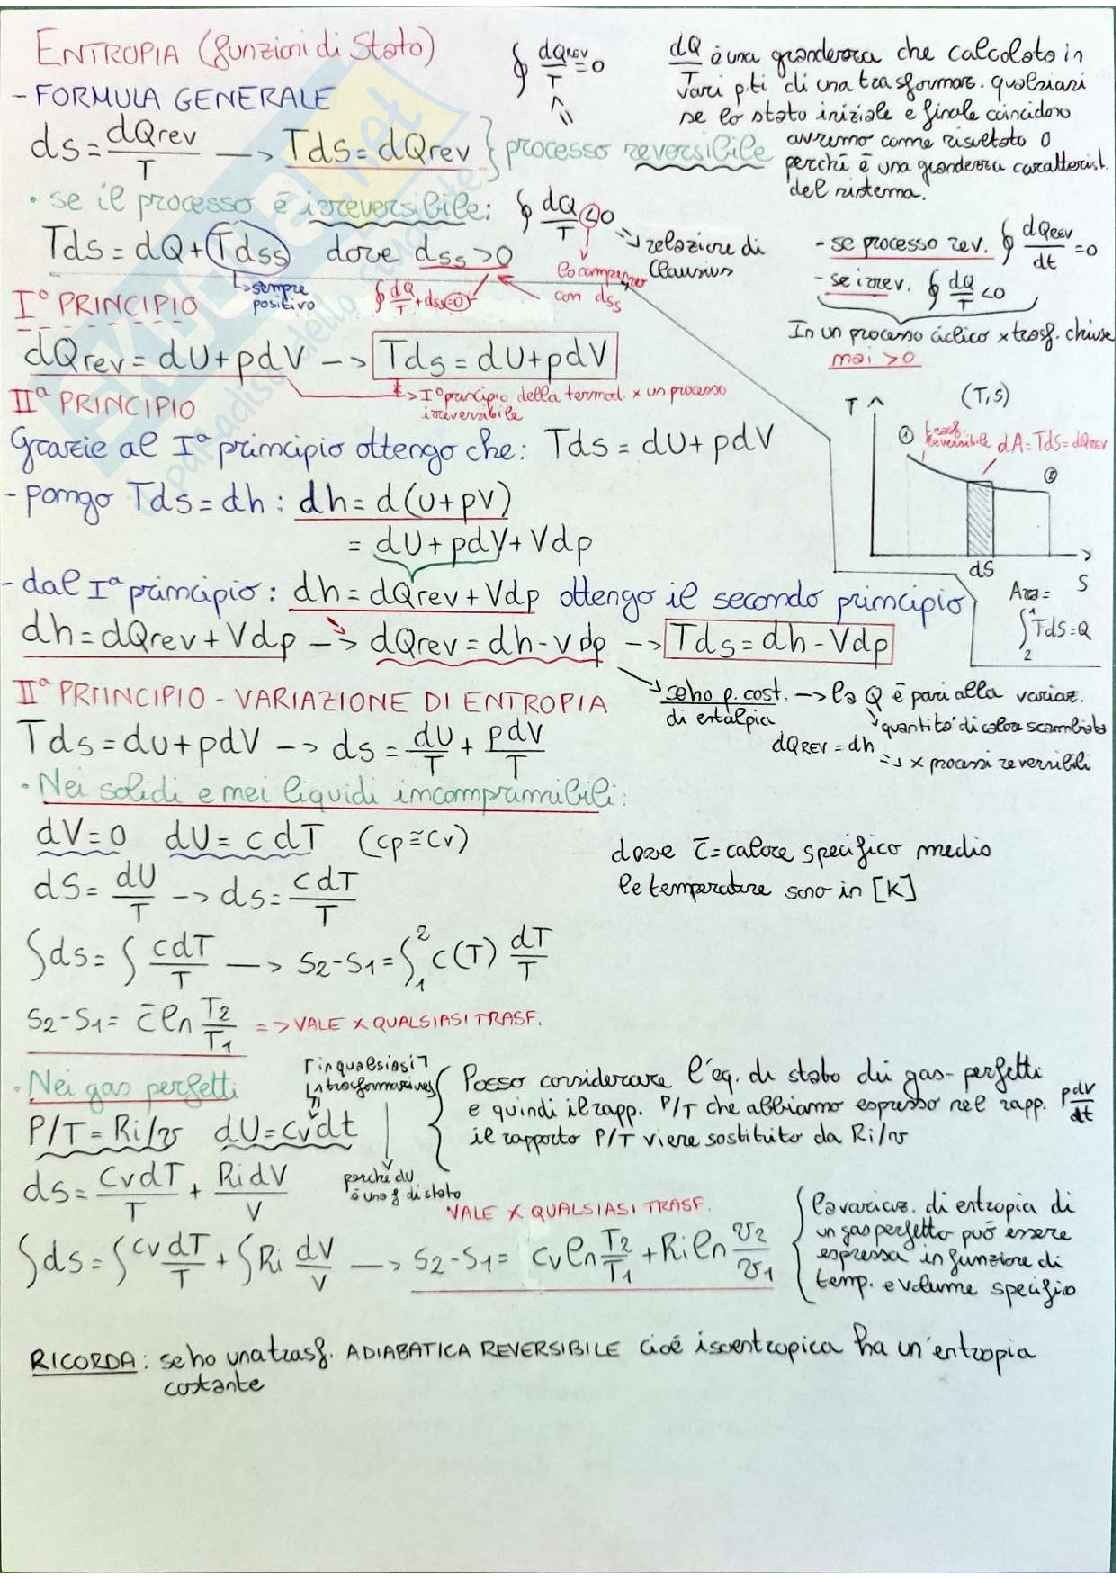 ENTROPIA (funzioni di Stato)
∮ dQrev/T = 0
dQ/T è una grandezza che calcolata in
vari p.ti di una trasformaz. qualsiasi
se lo stato iniziale e finale coincidono
avremo come risultato 0
perché è una grandezza caratterist.
del sistema.
- FORMULA GENERALE
ds = dQrev/T —> Tds = dQrev } processo reversibile
• se il processo è irreversibile: ∮ dQ/T < 0 => relazione di Clausius
lo compenso con dss
Tds = dQ + Tdss dove dss > 0
sempre positivo
∮ dQ/T + dss = 0
- se processo rev. ∮ dQrev/dt = 0
- se irrev. ∮ dQ/T < 0
In un processo ciclico x trasf. chiuse
mai > 0
Iº PRINCIPIO
dQrev = dU + pdV —> Tds = dU + pdV
Iº principio della termod. x un processo
irreversibile
IIª PRINCIPIO
Grazie al Iª principio ottengo che: Tds = dU + pdV
- pongo Tds = dh : dh = d(U + pV)
= dU + pdV + Vdp
- dal Iª principio : dh = dQrev + Vdp ottengo il secondo principio
dh = dQrev + Vdp —> dQrev = dh - vdp —> Tds = dh - Vdp
T (T,S)
1 trasf. reversibile dA = Tds = dQrev
2
dS S
Area =
∫ Tds = Q
1
2
se ho p. cost. —> la Q è pari alla variaz.
di entalpia
quantità di calore scambiata
dQREV = dh => x processi reversibili
IIª PRIINCIPIO - VARIAZIONE DI ENTROPIA
Tds = du + pdV —> ds = dU/T + pdV/T
• Nei solidi e nei liquidi incomprimibili:
dV = 0 dU = c dT (cp ≅ cv)
dove c̄ = calore specifico medio
le temperature sono in [K]
dS = dU/T —> ds = cdT/T
∫ds = ∫ cdT/T —> S2-S1 = ∫₁² c(T) dT/T
S2-S1 = c̄ ln T2/T1 => VALE x QUALSIASI TRASF.
• Nei gas perfetti
in qualsiasi
trasformazione
P/T = Ri/v dU = cvdt
perché du
è una f. di stato
{ Posso considerare l'eq. di stato dei gas-perfetti
e quindi il rapp. P/T che abbiamo espresso nel rapp. pdv/dt
il rapporto P/T viene sostituito da Ri/v
ds = CvdT/T + RidV/V
VALE x QUALSIASI TRASF.
∫ds = ∫cv dT/T + ∫Ri dV/V —> S2-S1 = cv ln T2/T1 + Ri ln v2/v1
{ la variaz. di entropia di
un gas perfetto può essere
espressa in funzione di
temp. e volume specifico
RICORDA: se ho una trasf. ADIABATICA REVERSIBILE cioè isoentropica ha un'entropia
costante